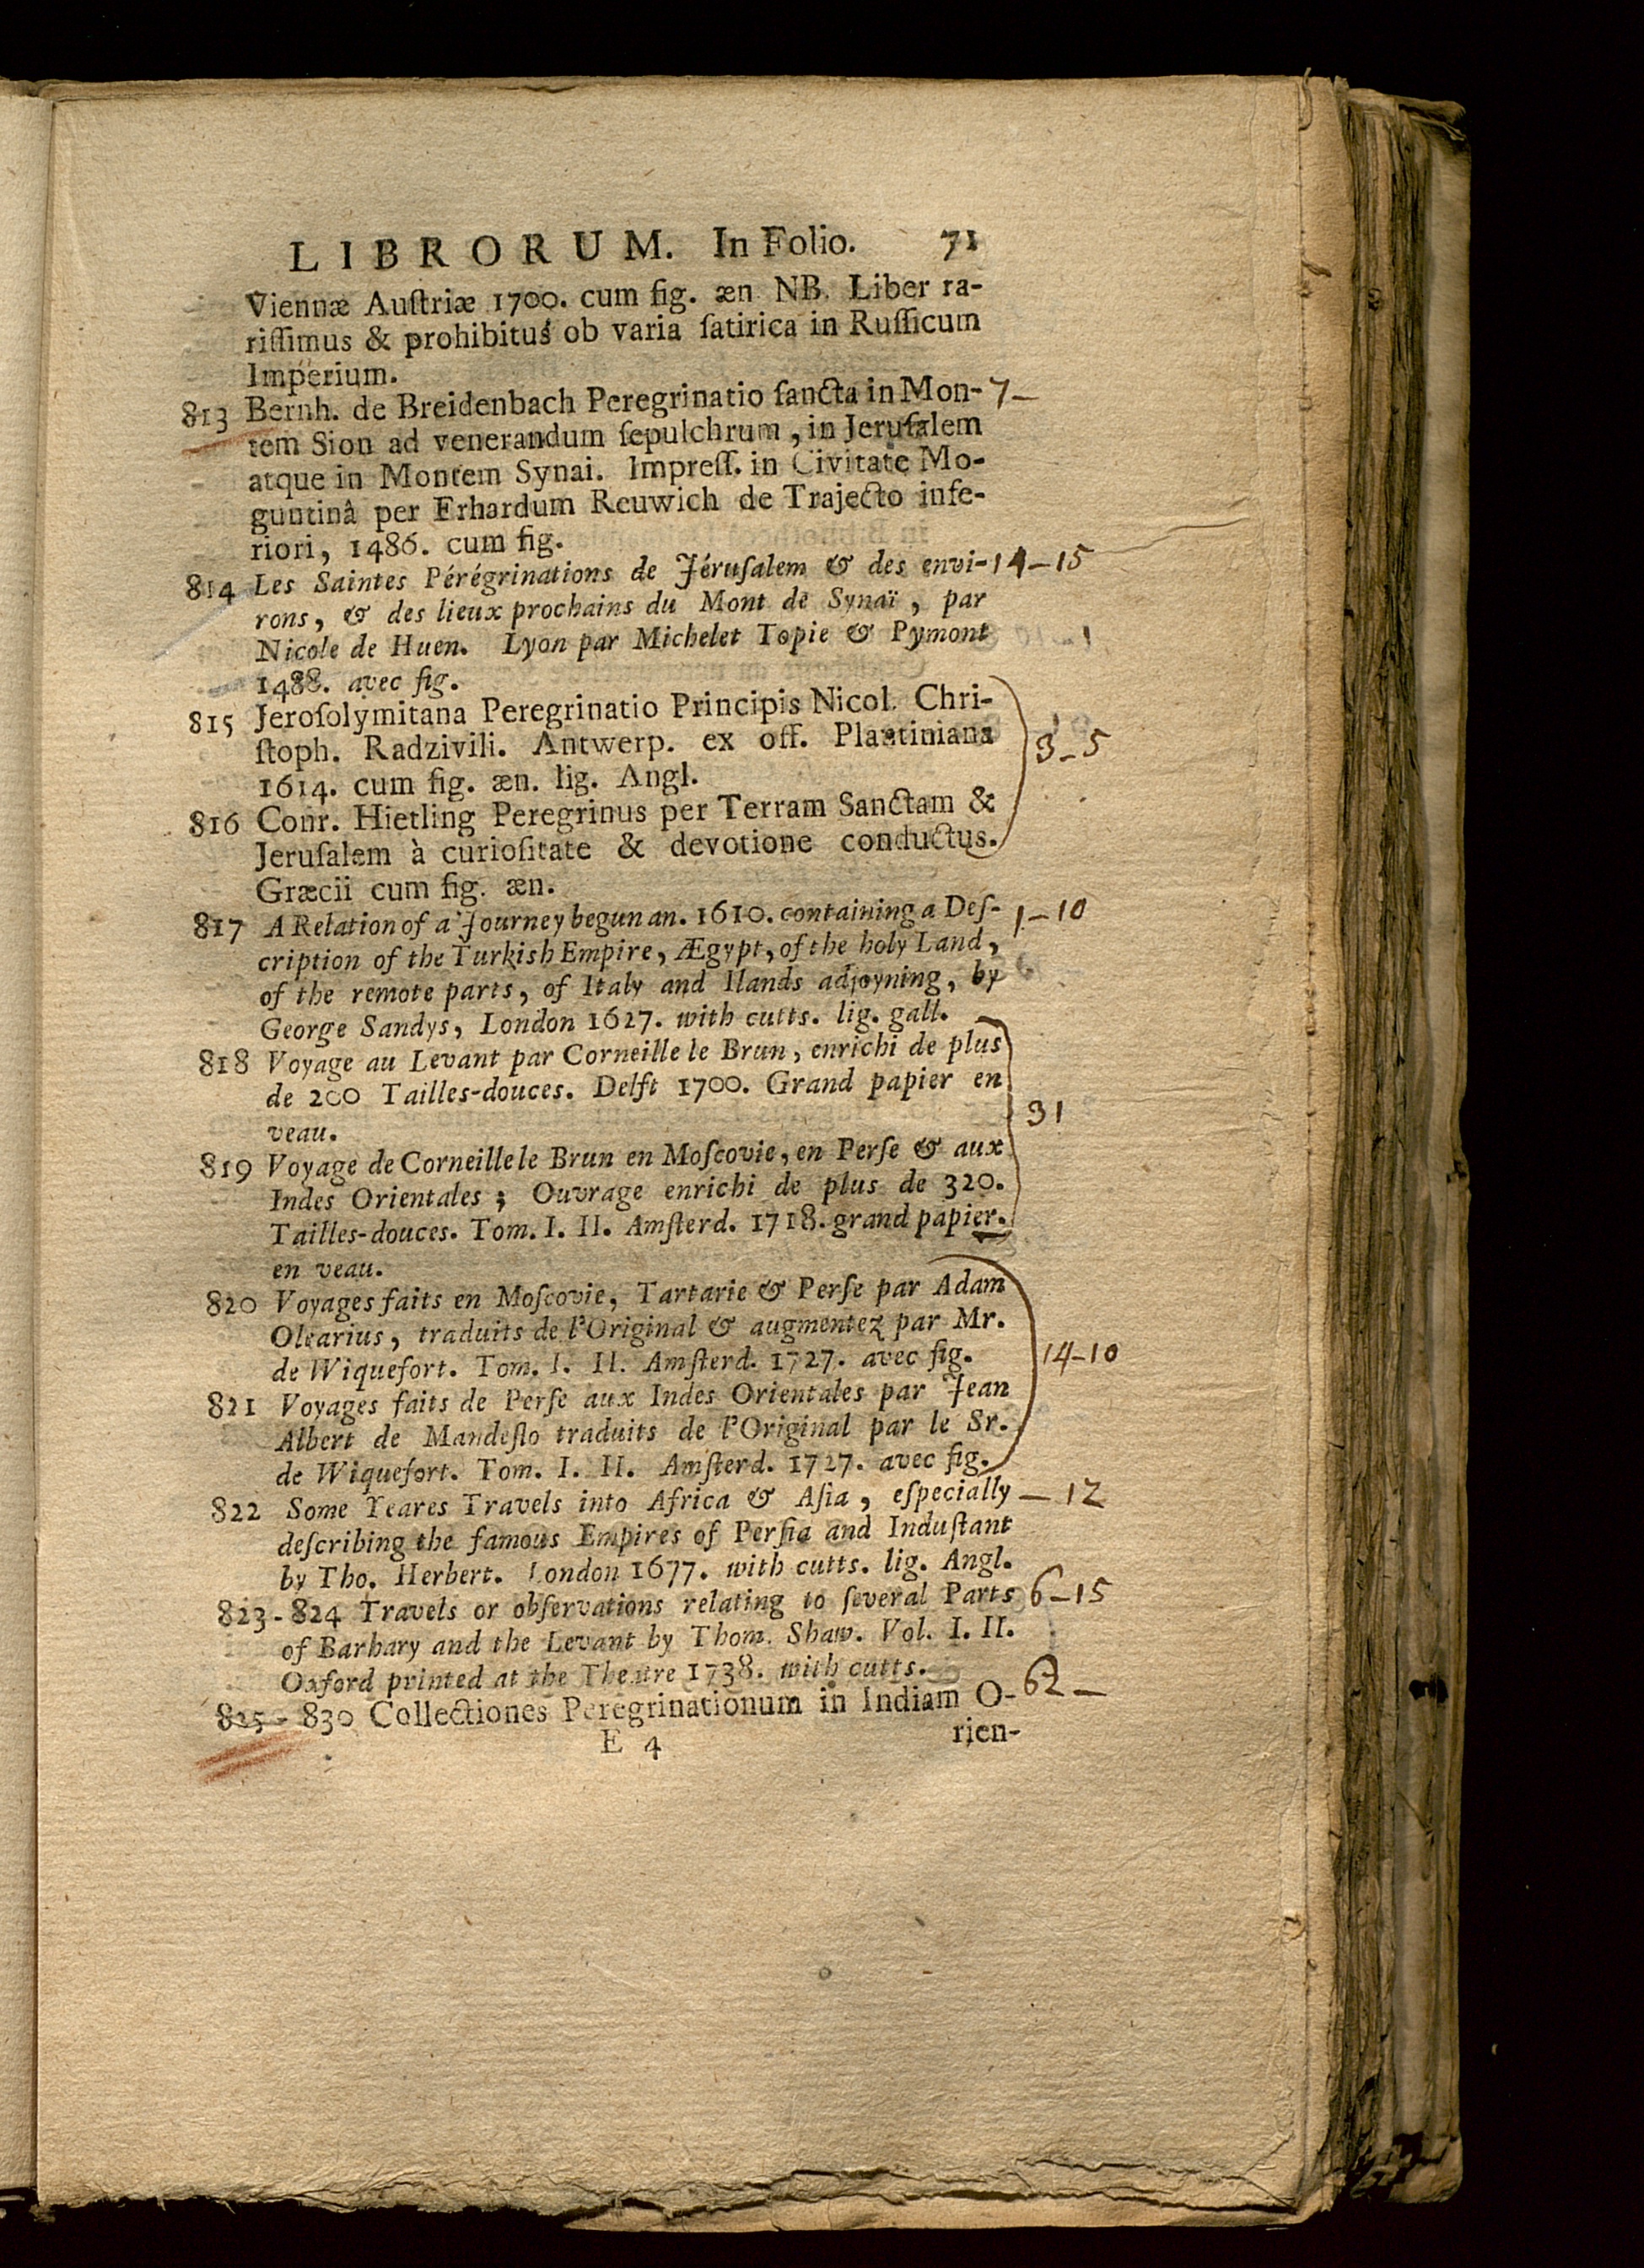 LIBRORUM. In Folio. 71
Viennæ Auſtriæ 1700. cum fig. æn. NB. Liber ra-
riſſimus & prohibitus ob varia ſatirica in Ruſſicum
Imperium.
813 Bernh. de Breidenbach Peregrinatio ſancta in Mon- 7—
tem Sion ad venerandum ſepulchrum, in Jeruſalem
atque in Montem Synai. Impreſſ. in Civitate Mo-
guntinâ per Erhardum Reuwich de Trajecto infe-
riori, 1486. cum fig.
814 Les Saintes Pérégrinations de Jéruſalem & des envi- 14—15
rons, & des lieux prochains du Mont de Synaï, par
Nicole de Huen. Lyon par Michelet Topie & Pymont
1488. avec fig.
815 Jeroſolymitana Peregrinatio Principis Nicol. Chri-
ſtoph. Radzivili. Antwerp. ex off. Plantiniana 3—5
1614. cum fig. æn. lig. Angl.
816 Conr. Hietling Peregrinus per Terram Sanctam &
Jeruſalem à curioſitate & devotione conductus.
Græcii cum fig. æn.
817 A Relation of a Journey begun an. 1610. containing a Deſ- 1—10
cription of the Turkish Empire, Ægypt, of the holy Land,
of the remote parts, of Italy and Ilands adjoyning, by
George Sandys, London 1627. with cutts. lig. gall.
818 Voyage au Levant par Corneille le Brun, enrichi de plus
de 200 Tailles-douces. Delft 1700. Grand papier en 31
veau.
819 Voyage de Corneille le Brun en Moſcovie, en Perſe & aux
Indes Orientales; Ouvrage enrichi de plus de 320.
Tailles-douces. Tom. I. II. Amſterd. 1718. grand papier.
en veau.
820 Voyages faits en Moſcovie, Tartarie & Perſe par Adam
Olearius, traduits de l'Original & augmentez par Mr.
de Wiquefort. Tom. I. II. Amſterd. 1727. avec fig. 14—10
821 Voyages faits de Perſe aux Indes Orientales par Jean
Albert de Mandeſlo traduits de l'Original par le Sr.
de Wiquefort. Tom. I. II. Amſterd. 1727. avec fig.
822 Some Yeares Travels into Africa & Aſia, eſpecially — 12
deſcribing the famous Empires of Perſia and Induſtant
by Tho. Herbert. London 1677. with cutts. lig. Angl.
823-824 Travels or obſervations relating to ſeveral Parts 6—15
of Barbary and the Levant by Thom. Shaw. Vol. I. II.
Oxford printed at the Theatre 1738. with cutts.
825-830 Collectiones Peregrinationum in Indiam O- 62—
E 4 rien-